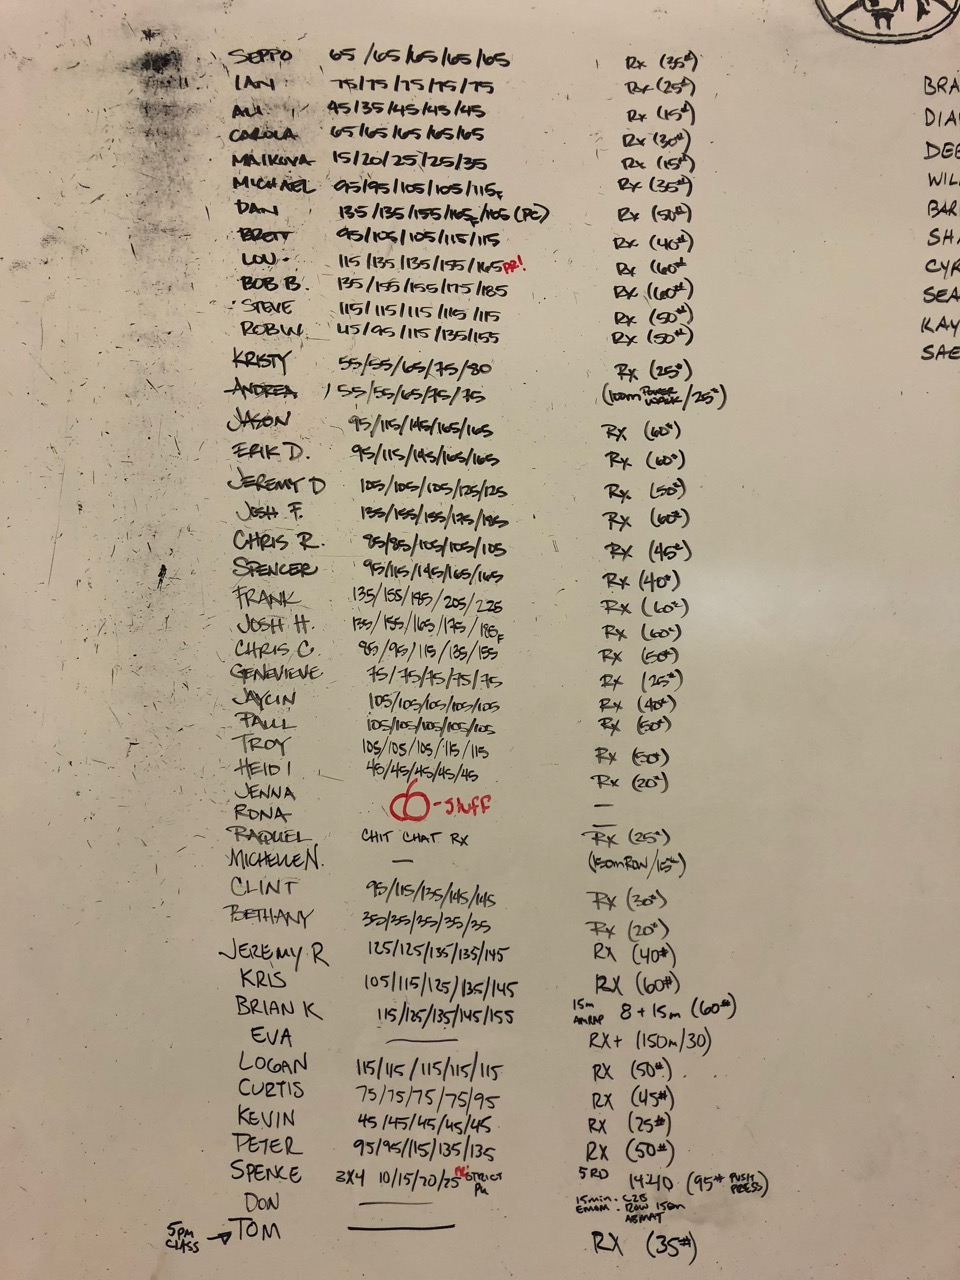 SEPPO 65/65/65/65/65 Rx (35#)
IAN 75/75/75/75/75 Rx (25#)
ALI 45/35/45/45/45 Rx (15#)
CAROLA 65/65/65/65/65 Rx (30#)
15/20/25/25/35 Rx (15#)
MICHAEL 95/95/105/105/115F Rx (35#)
DAN 135/135/155/165F/165 (PC) Rx (50#)
BRETT 95/105/105/115/115 Rx (40#)
LOU 115/135/135/155/165 PR! Rx (60#)
BOB B. 135/155/155/175/185 Rx (60#)
STEVE 115/115/115/115/115 Rx (50#)
ROBIN 45/95/115/135/155 Rx (50#)
KRISTY 55/55/65/75/80 Rx (25#)
ANDREA 55/55/65/75/75 (100m POWER WALK/25#)
JASON 95/115/145/165/165 Rx (60#)
ERIK D. 95/115/145/165/165 Rx (60#)
JEREMY D 105/105/105/125/125 Rx (50#)
JOSH F. 135/155/155/175/185 Rx (60#)
CHRIS R. 85/85/105/105/105 Rx (45#)
SPENCER 95/115/145/165/165 Rx (40#)
FRANK 135/155/185/205/225 Rx (60#)
JOSH H. 135/155/165/175/185F Rx (60#)
CHRIS C. 85/95/115/135/155 Rx (50#)
GENEVIEVE 75/75/75/75/75 Rx (25#)
JAYCIN 105/105/105/105/105 Rx (40#)
PAUL 105/105/105/105/105 Rx (50#)
TROY 105/105/105/115/115 Rx (50#)
HEIDI 45/45/45/45/45 Rx (20#)
JENNA - STUFF —
RONA —
RAQUEL CHIT CHAT RX Rx (25#)
MICHELLE N. — (150m ROW/15#)
CLINT 95/115/135/145/145 Rx (30#)
BETHANY 35/35/35/35/35 Rx (20#)
JEREMY R 125/125/135/135/145 RX (40#)
KRIS 105/115/125/135/145 RX (60#)
BRIAN K 115/125/135/145/155 15m AMRAP 8 + 15m (60#)
EVA — RX+ (150m/30)
LOGAN 115/115/115/115/115 RX (50#)
CURTIS 75/75/75/75/95 RX (45#)
KEVIN 45/45/45/45/45 RX (25#)
PETER 95/95/115/135/135 RX (50#)
SPENCE 3X4 10/15/20/25 PR STRICT PU 5RD 14:40 (95# PUSH PRESS)
DON — 15min. EMOM C2B ROW 150m ABMAT
5PM CLASS → TOM — RX (35#)
BRA
DIA
DEE
WIL
BAR
SHA
CYR
SEA
KAY
SAE